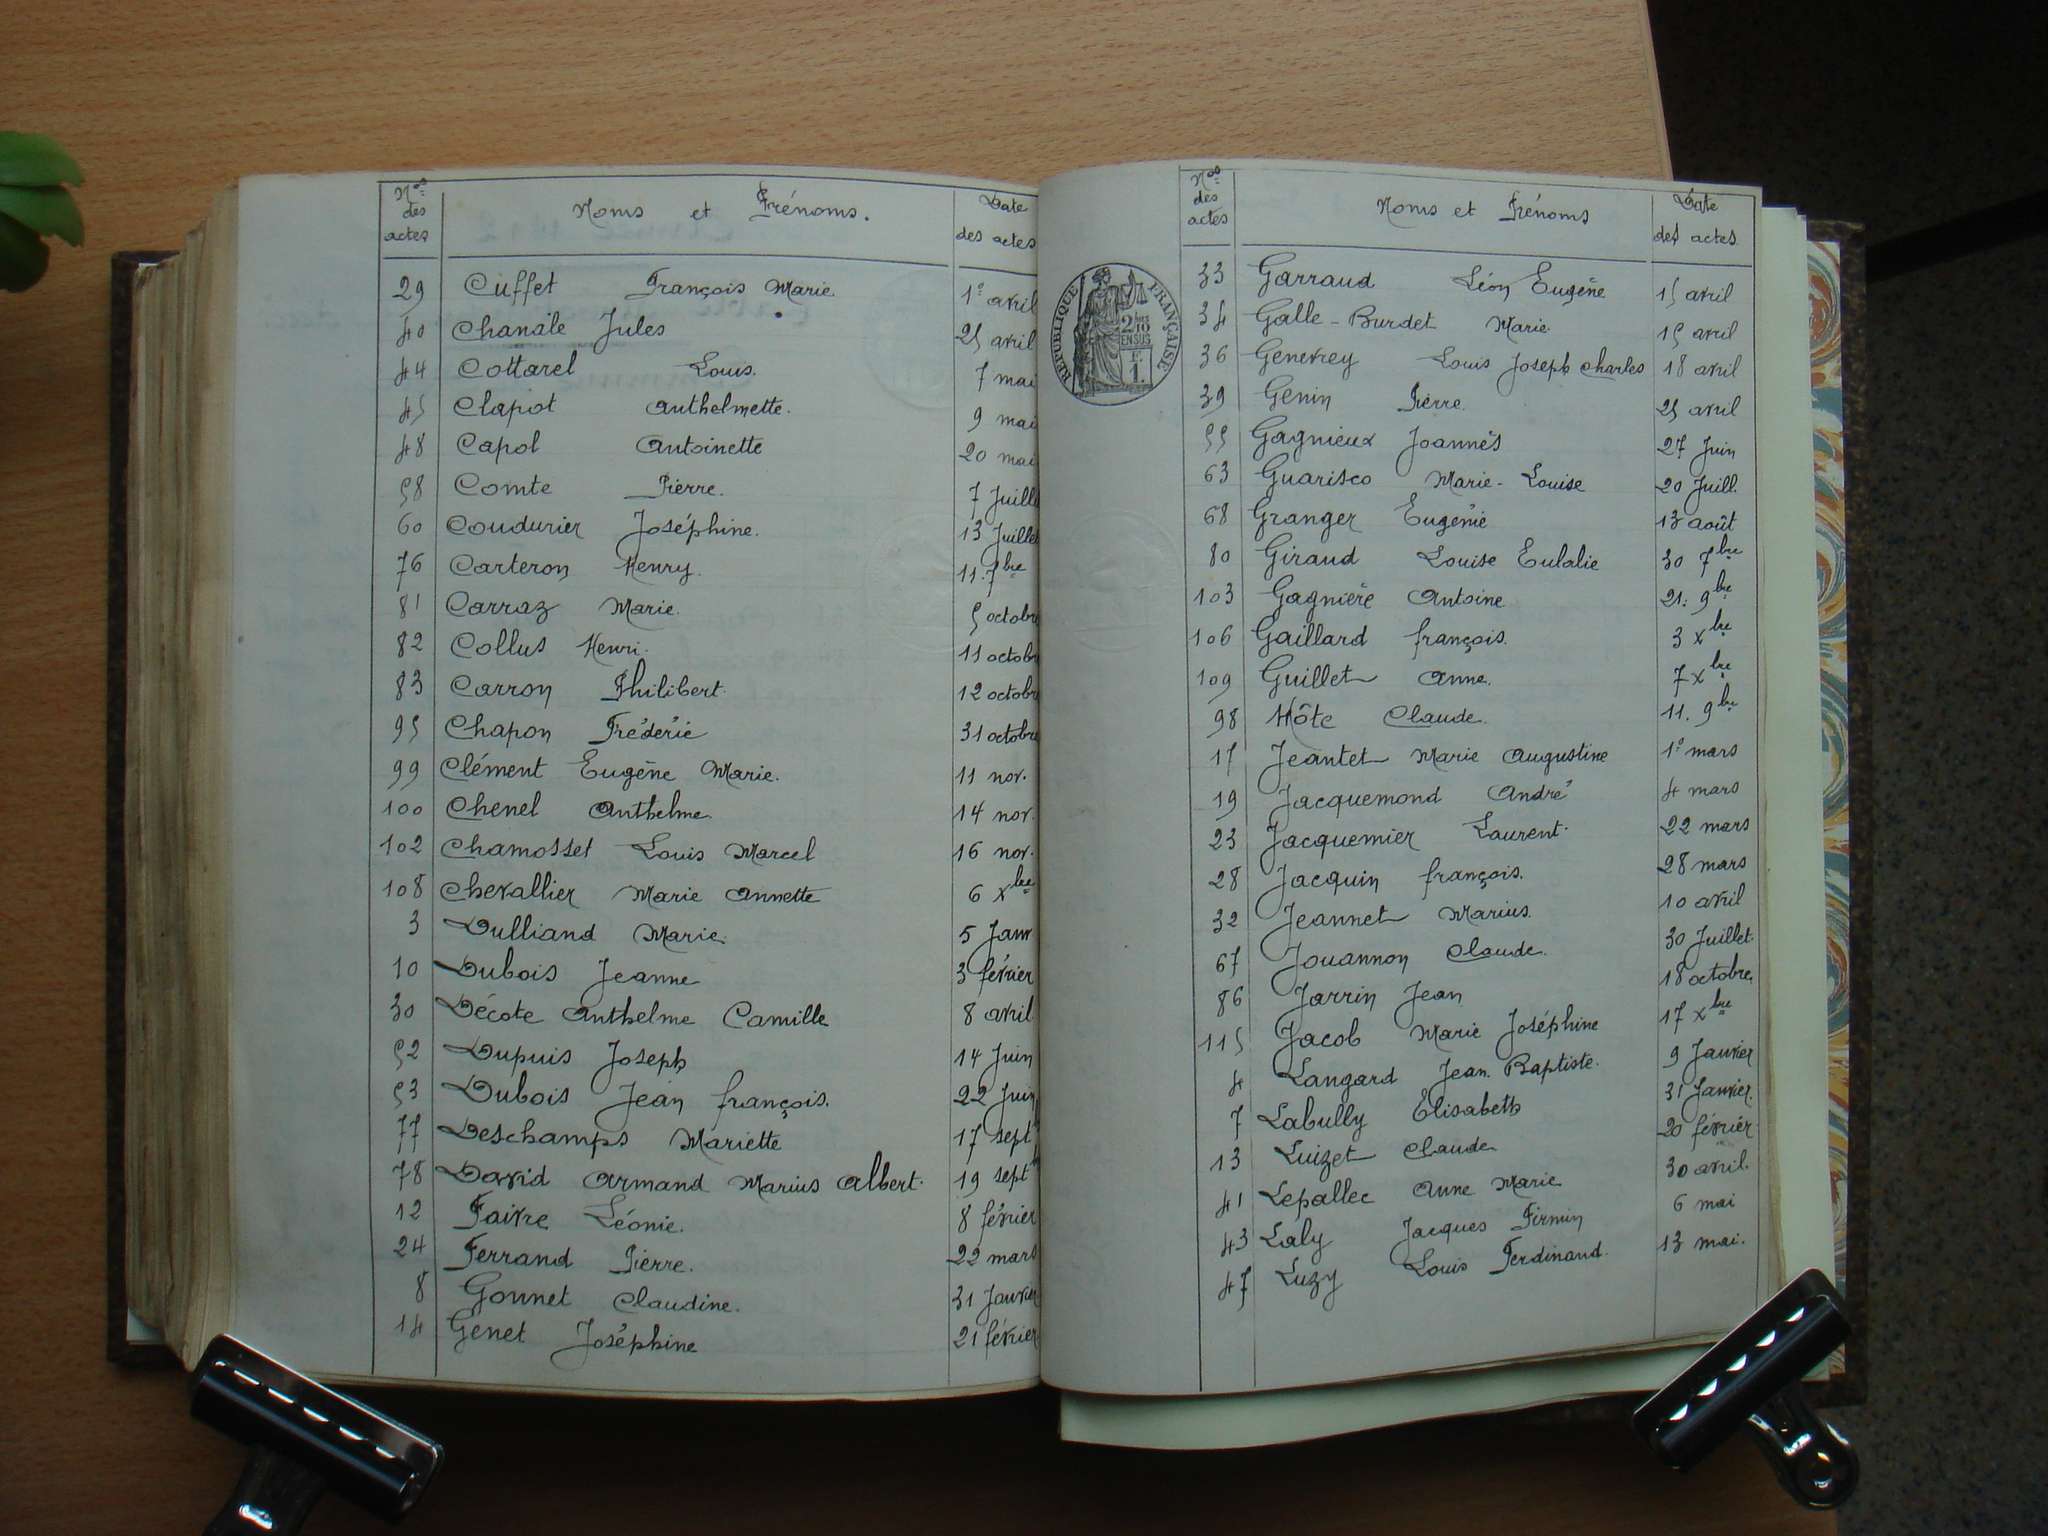 Nos des actes Noms et Prénoms. Date des actes
29 Cuffet François Marie 1er avril
40 Chanale Jules 25 avril
44 Cottarel Louis. 7 mai
45 Clapot Anthelmette. 9 mai
48 Capol Antoinette 20 mai
58 Comte Pierre. 7 Juill
60 Coudurier Joséphine. 13 Juillet
76 Carteron Henry. 11. 7bre
81 Carraz Marie. 5 octobre
82 Collus Henri. 11 octobre
83 Carron Philibert. 12 octobre
95 Chapon Fréderic 31 octobre
99 Clément Eugène Marie. 11 nov.
100 Chenel Anthelme. 14 nov.
102 Chamosset Louis Marcel 16 nov.
108 Chevallier Marie Annette 6 xbre
3 Dulliand Marie. 5 Janv
10 Dubois Jeanne 3 février
30 Décote Anthelme Camille 8 avril
52 Dupuis Joseph 14 Juin
53 Dubois Jean françois. 22 Juin
77 Deschamps Mariette 17 sept
78 David Armand Marius Albert. 19 sept
12 Faivre Léonie. 8 février
24 Ferrand Pierre. 22 mars
8 Gonnet Claudine. 31 Janvier
14 Genet Joséphine 21 février
Nos des actes Noms et Prénoms Date des actes
RÉPUBLIQUE FRANÇAISE
2/10 EN SUS
1 F.
33 Garraud Léon Eugène 15 avril
34 Galle-Burdet Marie. 15 avril
36 Genevrey Louis Joseph Charles 18 avril
39 Genin Pierre. 25 avril
55 Gagnieux Joannès 27 Juin
63 Guarisco Marie-Louise 20 Juill.
68 Granger Eugénie 13 août
80 Giraud Louise Eulalie 30 7bre
103 Gagnière Antoine 21. 9bre
106 Gaillard françois. 3 xbre
109 Guillet Anne. 7 xbre
98 Hôte Claude. 11. 9bre
17 Jeantet Marie Augustine 1er mars
19 Jacquemond André 4 mars
23 Jacquemier Laurent. 22 mars
28 Jacquin françois. 28 mars
32 Jeannet Marius. 10 avril
67 Jouannon Claude. 30 Juillet.
86 Jarrin Jean 18 octobre.
115 Jacob Marie Joséphine 17 xbre
4 Langard Jean Baptiste. 9 Janvier
7 Labully Elisabeth 31 Janvier.
13 Luizet Claude 20 février
41 Lepallec Anne Marie 30 avril.
43 Laly Jacques Firmin 6 mai
47 Luzy Louis Ferdinand. 13 mai.